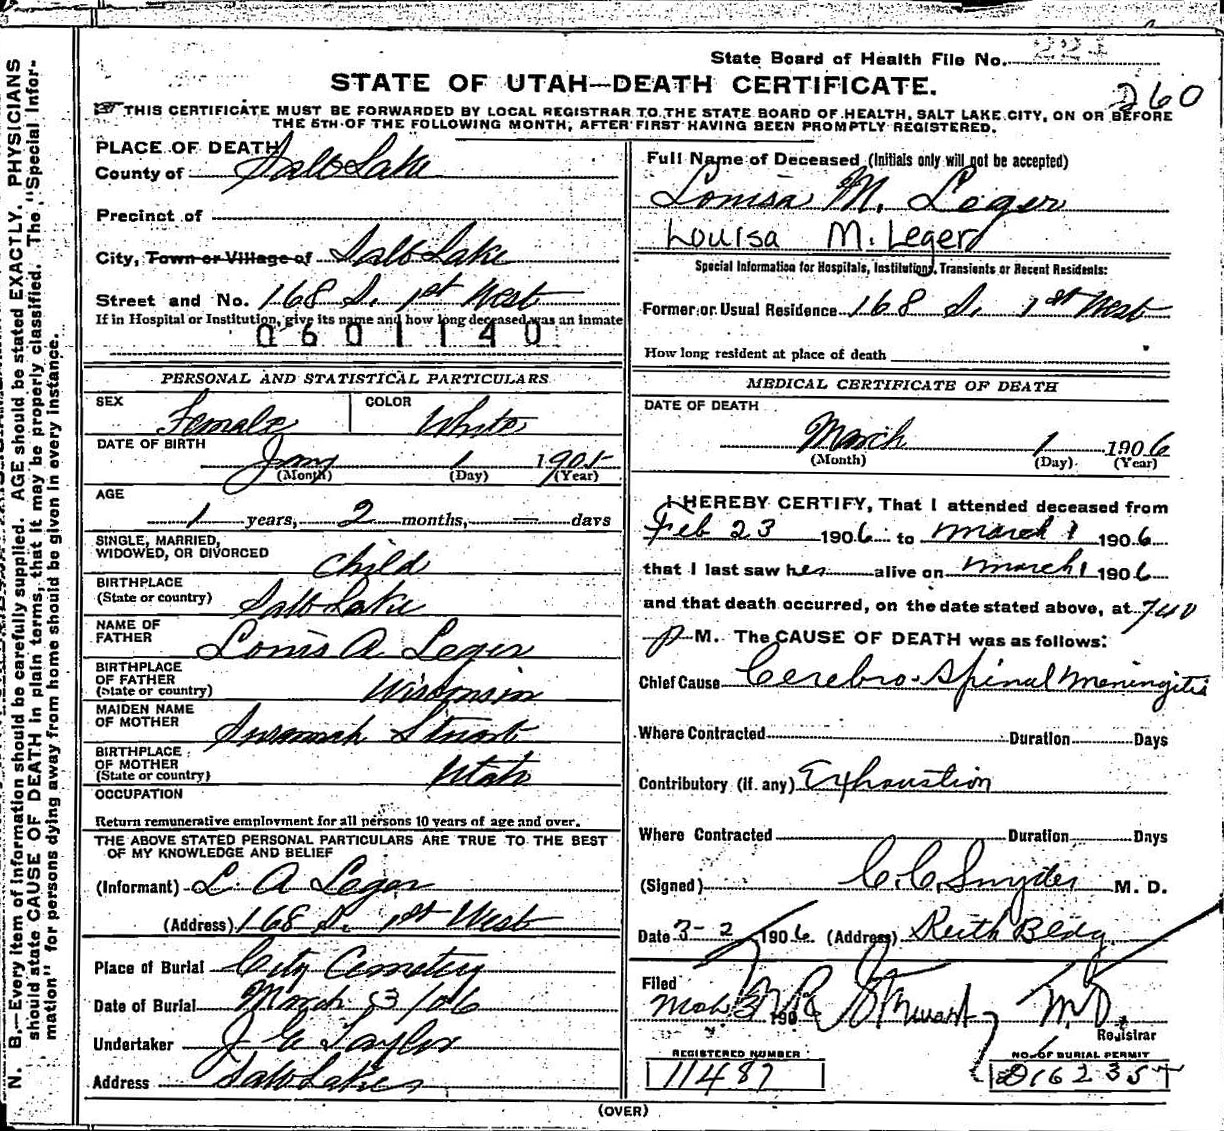 State Board of Health File No. 221
STATE OF UTAH—DEATH CERTIFICATE.
260
THIS CERTIFICATE MUST BE FORWARDED BY LOCAL REGISTRAR TO THE STATE BOARD OF HEALTH, SALT LAKE CITY, ON OR BEFORE
THE 5TH OF THE FOLLOWING MONTH, AFTER FIRST HAVING BEEN PROMPTLY REGISTERED.
PLACE OF DEATH
County of Salt Lake
Precinct of
City, Town or Village of Salt Lake
Street and No. 168 S. 1st West
If in Hospital or Institution, give its name and how long deceased was an inmate
0601140
PERSONAL AND STATISTICAL PARTICULARS
SEX Female COLOR White
DATE OF BIRTH
Jany 1 1905
(Month) (Day) (Year)
AGE
1 years, 2 months, — days
SINGLE, MARRIED,
WIDOWED, OR DIVORCED Child
BIRTHPLACE
(State or country) Salt Lake
NAME OF
FATHER Louis A Leger
BIRTHPLACE
OF FATHER
(State or country) Wisconsin
MAIDEN NAME
OF MOTHER Susannah Stuart
BIRTHPLACE
OF MOTHER
(State or country) Utah
OCCUPATION
Return remunerative employment for all persons 10 years of age and over.
THE ABOVE STATED PERSONAL PARTICULARS ARE TRUE TO THE BEST
OF MY KNOWLEDGE AND BELIEF
(Informant) L. A Leger
(Address) 168 S. 1st West
Place of Burial City Cemetery
Date of Burial March 3/06
Undertaker J E Taylor
Address Salt Lake
Full Name of Deceased (Initials only will not be accepted)
Louisa M. Leger
Louisa M. Leger
Special Information for Hospitals, Institutions, Transients or Recent Residents:
Former or Usual Residence 168 S. 1st West
How long resident at place of death
MEDICAL CERTIFICATE OF DEATH
DATE OF DEATH
March 1 1906
(Month) (Day) (Year)
I HEREBY CERTIFY, That I attended deceased from
Feb 23 1906 to March 1 1906
that I last saw her alive on March 1 1906
and that death occurred, on the date stated above, at 740
P M. The CAUSE OF DEATH was as follows:
Chief Cause Cerebro-Spinal Meningitis
Where Contracted Duration Days
Contributory (if any) Exhaustion
Where Contracted Duration Days
(Signed) C. C. Snyder M. D.
Date 3-2 1906 (Address) Keith Bldg.
Filed
Mch 3 190 Stewart M D
Registrar
REGISTERED NUMBER
11487
NO. OF BURIAL PERMIT
(OVER)
N. B.—Every item of information should be carefully supplied. AGE should be stated EXACTLY. PHYSICIANS
should state CAUSE OF DEATH in plain terms, that it may be properly classified. The "Special Infor-
mation" for persons dying away from home should be given in every instance.